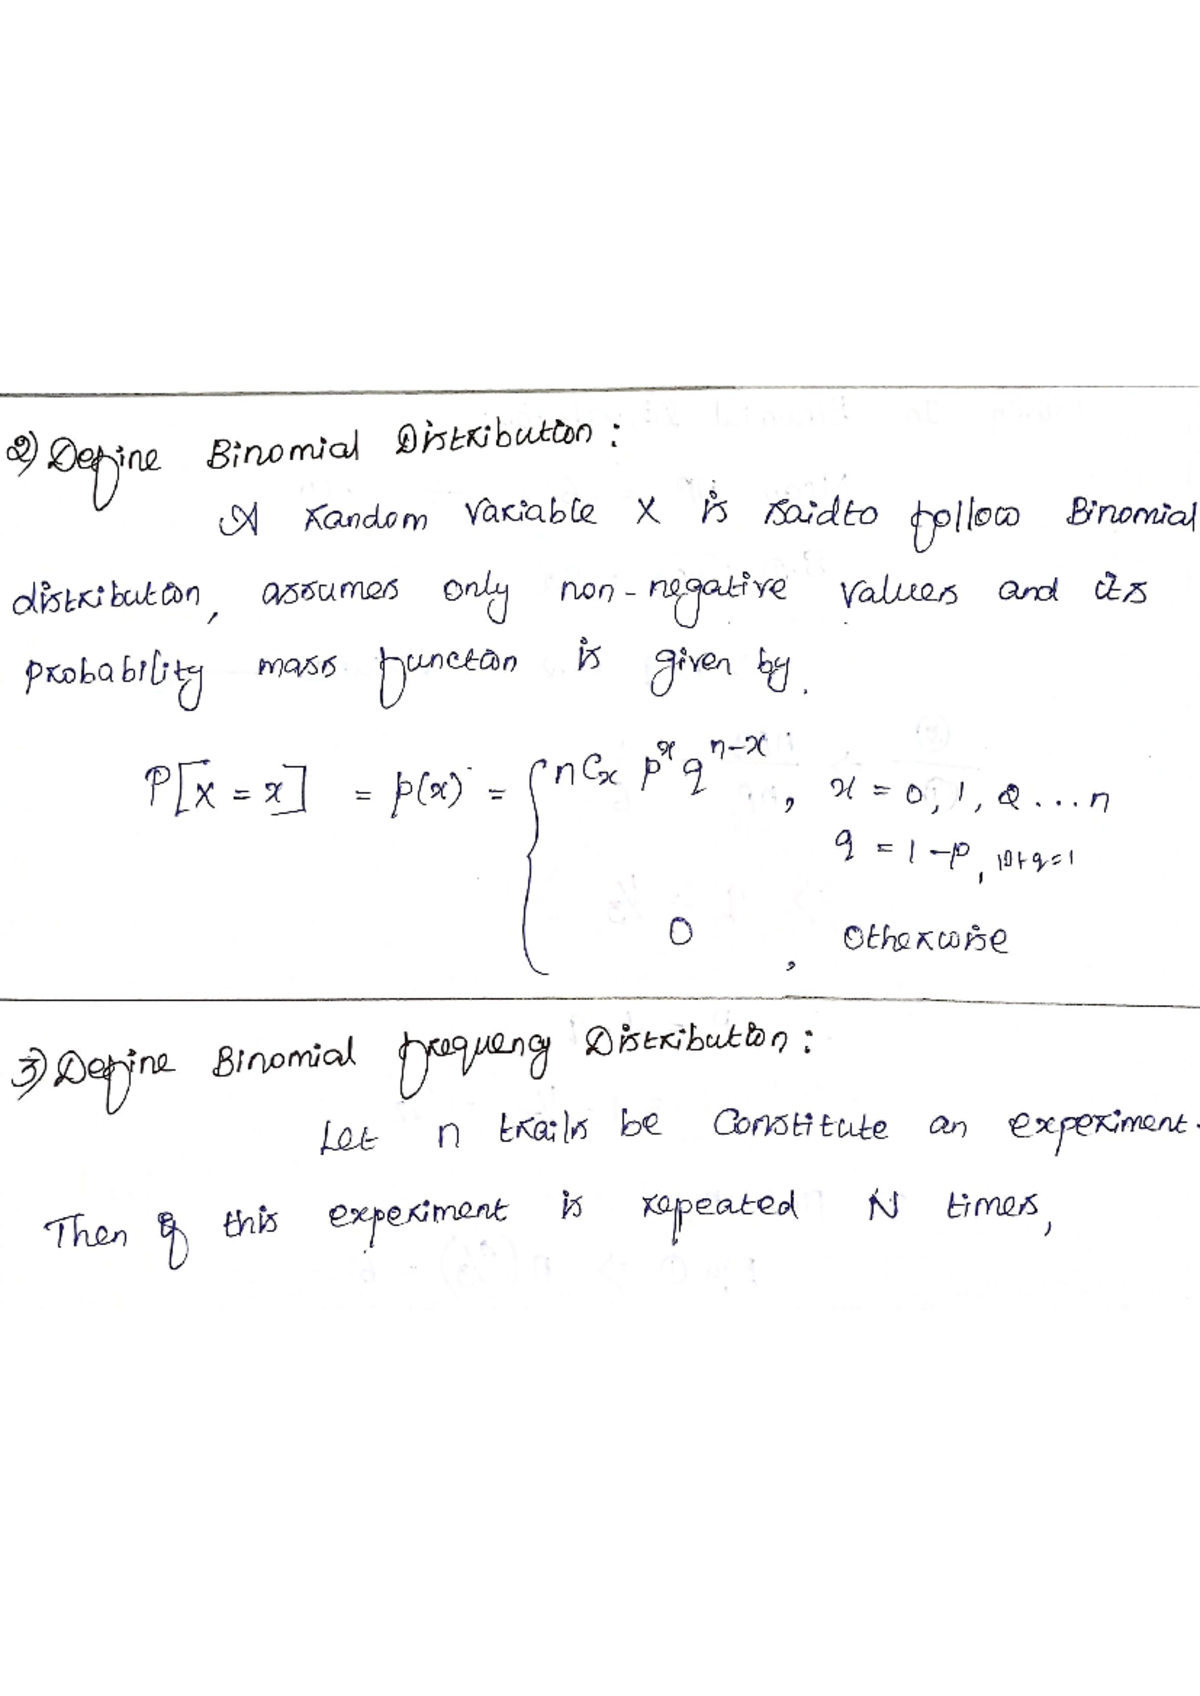 2) Define Binomial Distribution :
A random variable X is saidto follow Binomial
distribution, assumes only non-negative values and its
probability mass function is given by.
P[X = x] = p(x) = { nCx p^x q^(n-x) , x = 0, 1, 2 ... n
q = 1 - p, p+q=1
0 , otherwise
3) Define Binomial frequency Distribution :
Let n trails be Constitute an experiment.
Then if this experiment is repeated N times,